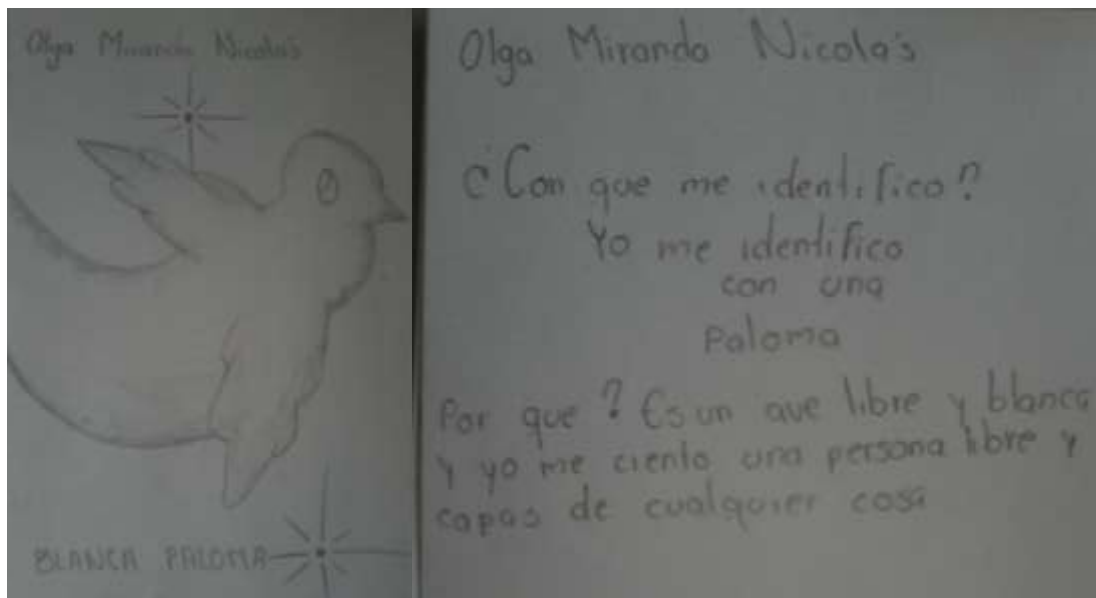 Olga Miranda Nicolas
BLANCA PALOMA
Olga Miranda Nicola's
¿Con que me identifico?
Yo me identifico
con una
Paloma
Por que? Es un ave libre y blanca
y yo me ciento una persona libre y
capas de cualquier cosa